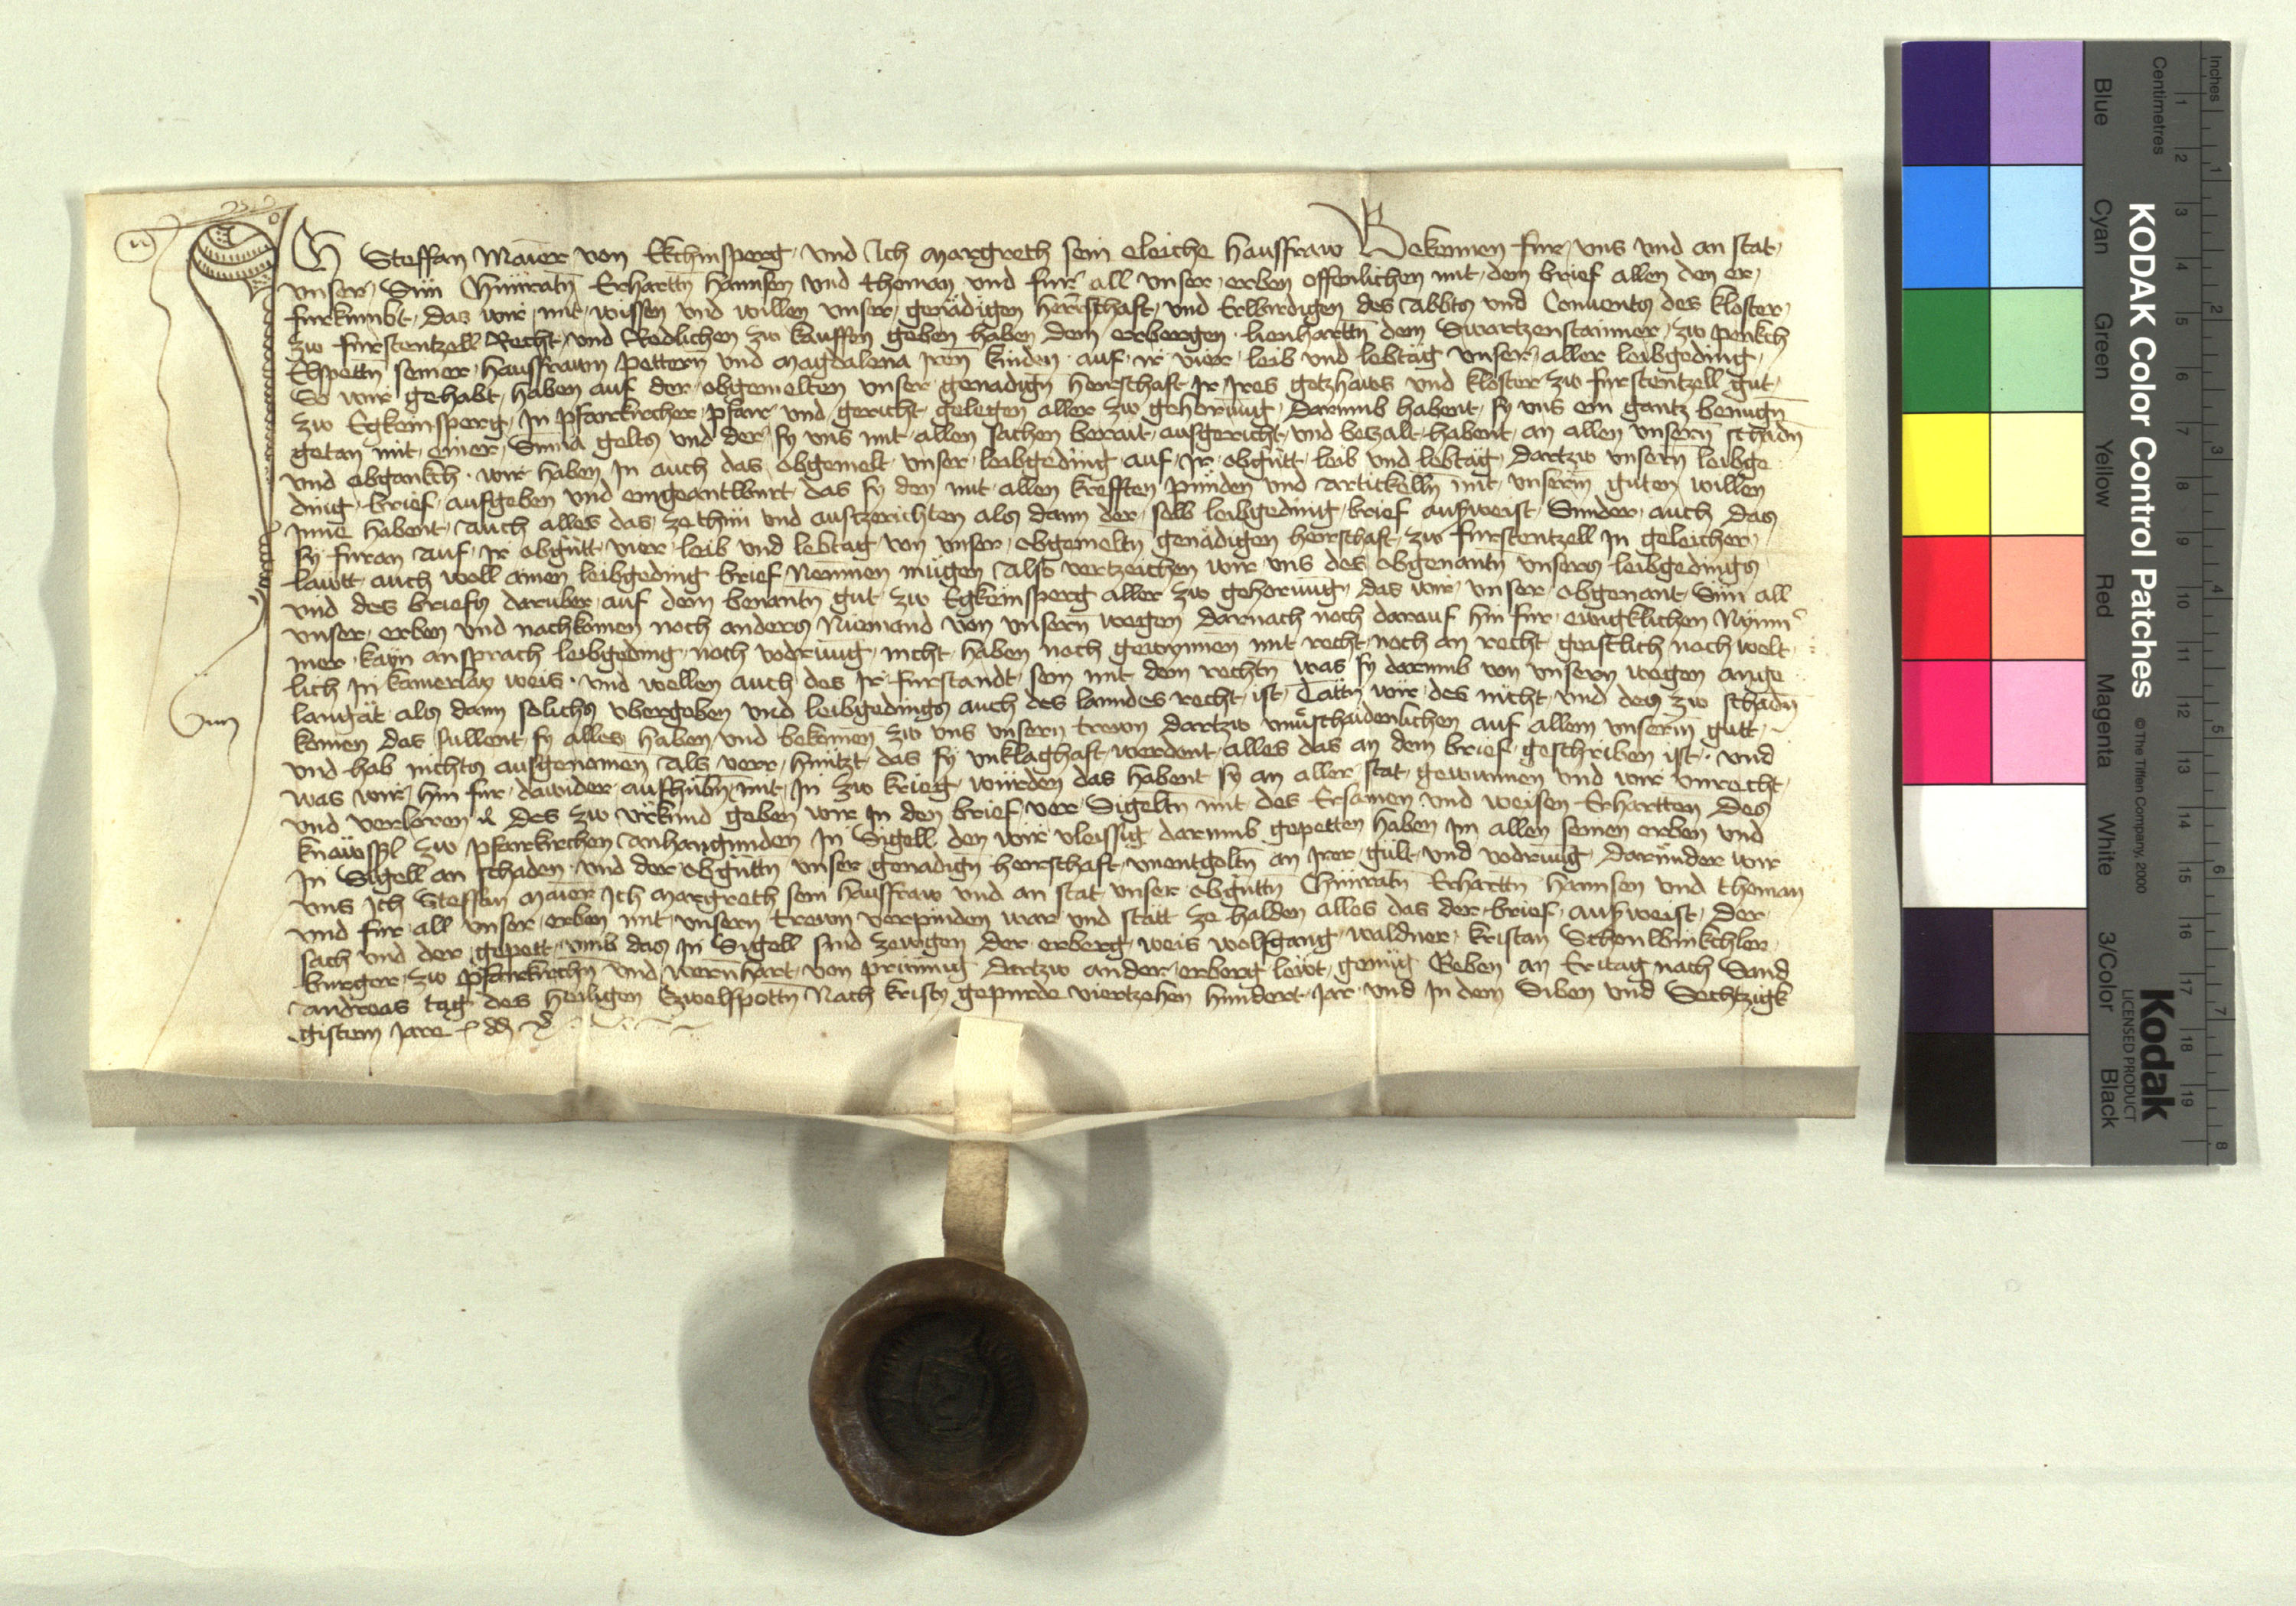 Ich Steffan Maier von Ekchinsperg und Ich Margreth sein eleiche hausfraw Bekennen fur uns und an stat
unser Sün Chünratn Erhartn hannsen und thoman und fur all unser erben offenlichen mit dem brief allen den er
furkumbt das wir mit wissen und willen unser genädigen herrschaft und Erbirdigen des Abbts und Convents des kloster
zw furstentzell Recht und Redlichen zw kauffen geben haben dem erbergen lienharttn dem Swartzenstainner zw penkch
Elspettn seiner hausfrawn pettern und Magdalena Iren kinden auf ir vier leib und lebtäg unser aller leibgeding
So wir gehabt haben auf der obgemelten unser genadign herrschaft Ir Ires getzhaws und kloster zw furstentzell gut
zw Egkeinsperg In pfarrkircher pfarr und gericht gelegen aller zw gehorung darumb habent sy uns ein gantz benügn
getan mit einer Suma gelts und der sy uns mit allen sachen berait ausgericht und betzalt habent an allen unsern schadn
und abgankch wir haben In auch das obgemelt unser leibgeding auf Ir obgutt leib und lebtäg dartzw unsern leibge
ding brief aufgeben und eingeantburt das sy den mit allen krefften pünden und artickelln mit unserm guten willen
Inne habent auch alles das zethün und austzerichten als dann der selb leibgeding brief ausweist Sunder auch das
sy furan auf Ir obgutt vier leib und lebtag von unser obgemeltn genädigen herrschaft zw furstentzell In geleicher
lawtt auch woll ainen leibgeding brief Nemmen mügen Also vertzeichen wir uns des obgenantn unsers leibgedings
und des briefs daruber auf dem benantn gut zw Egkeinsperg aller zw gehorung das wir unser obgenant Sün all
unser erben und nachkomen noch anders Niemand von unsern wegen darnach noch darauf hin fur ewigklichen Nymm
mer kayn ansprach leibgeding noch vodrung nicht haben noch gewynnen mit recht noch an recht geistlich noch welt
lich In kainerlay weis und wellen auch des Ir furstandt sein mit dem rechtn was sy darumb von unsern wegen ange
langät als dann solichs ubergeben und leibgedings auch des lanndes recht ist Tättn wir des nicht und des zw schadn
komen das sullent sy alles haben und bekomen zw uns unsern trewn dartzw unuerschaidenlichen auf allem unserm gutt
und hab nichts ausgenomen als verr hüntzt das sy unklaghaft werdent alles das an dem brief geschriben ist und
was wir hin fur dawider aufhübn mit In zw krieg würden das habent sy an aller stat gewunnen und wir unrecht
und verloren Des zw urkund geben wir In den brief ver Sigeltn mit des Ersamen und weisen Erhartten des
knäwssl zw pfarrkirchen anhangunden In Sigell den wir vleissig darumb gepetten haben Im allen seinen erben und
In Sigell an schaden und der obguttn unser genadign herrschaft unentgoltn an Irer gült und vodrung darunder wir
uns Ich Steffan Maier Ich Margreth sein hausfraw und an stat unser obguttn Chünratn Erharttn hannsen und thoman
und fur all unser erben mit unsern trewn verpinden war und stätt ze halden alles das der brief ausweist Der
sach und der gepett umb das In Sigell sind zewgen der erberg weis wolfgang waldner kristan Schonbinkchler
burger zw pfarrkirchn und wernhart von prünnig dartzw ander erberg lewt genüg Geben an Eritag nach Sand
andreas tag des heiligen Zwelfpottn Nach kristi gepurde viertzehen hundert Jar und In dem Siben und Sechtzigk
gistem Jare
KODAK Color Control Patches © The Tiffen Company, 2000
Kodak
LICENSED PRODUCT
Inches 1 2 3 4 5 6 7 8
Centimetres 1 2 3 4 5 6 7 8 9 10 11 12 13 14 15 16 17 18 19
Blue Cyan Green Yellow Red Magenta White 3/Color Black